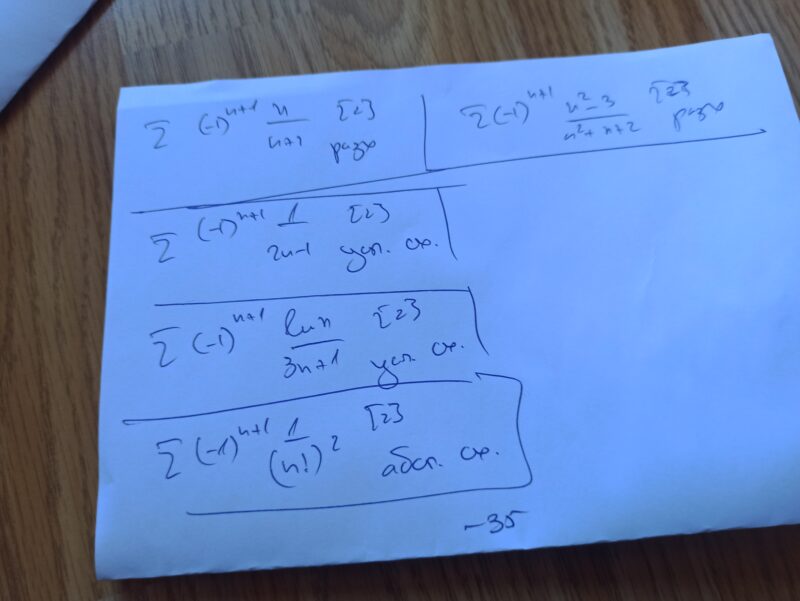 Σ (-1)^{n+1} n/(n+1) [23]
расх
Σ (-1)^{n+1} (n²-3)/(n²+n+2) [23]
расх
Σ (-1)^{n+1} 1/(2n-1) [23]
усл. сх.
Σ (-1)^{n+1} ln n/(3n+1) [23]
усл. сх.
Σ (-1)^{n+1} 1/(n!)² [23]
абсл. сх.
-35